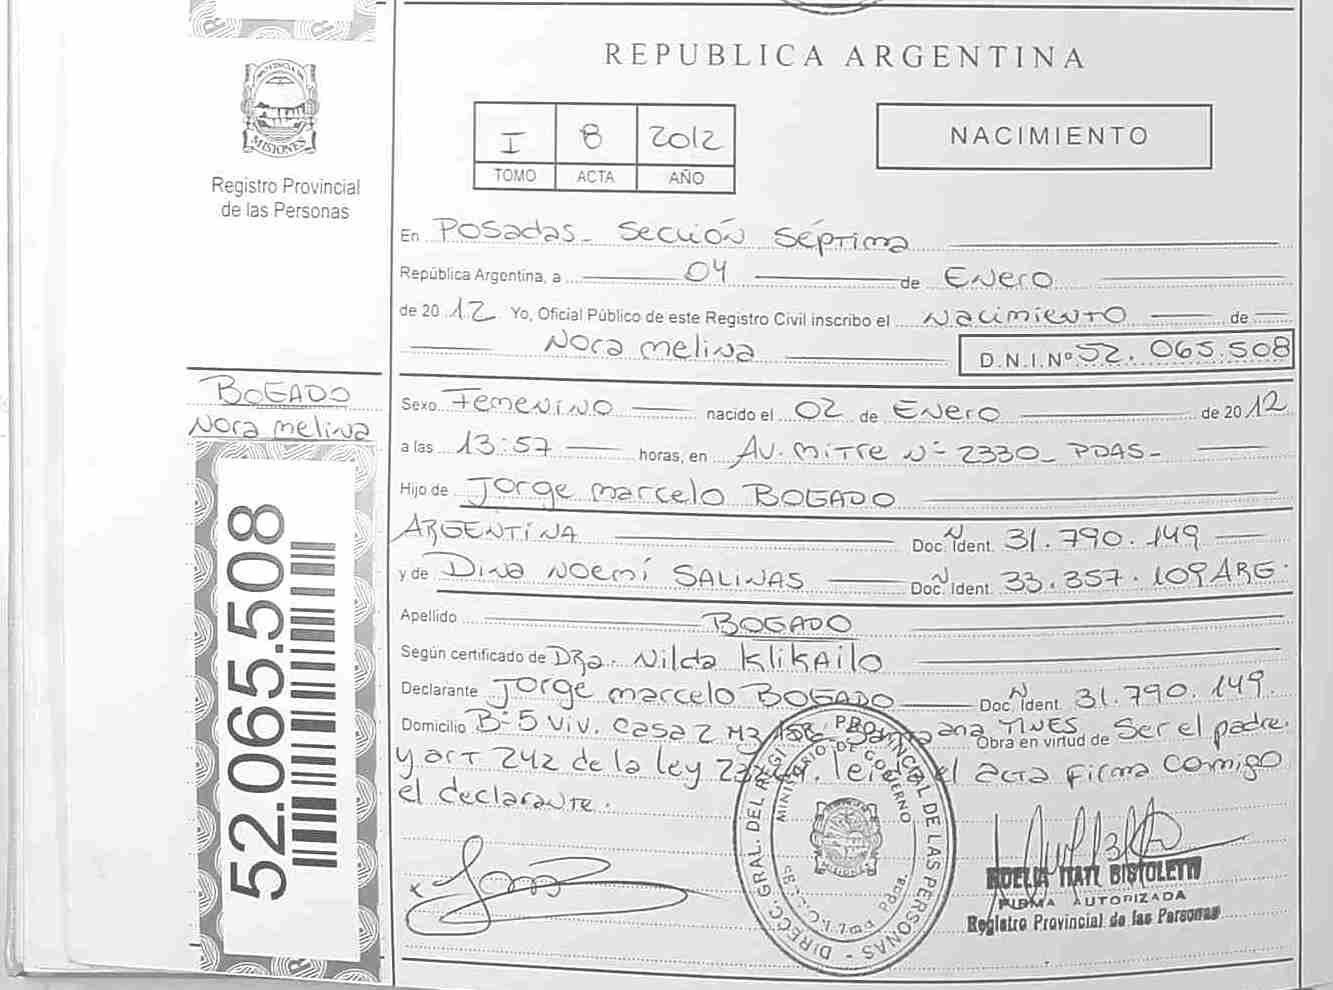 REPUBLICA ARGENTINA
PROVINCIA DE
MISIONES
Registro Provincial
de las Personas
I 8 2012
TOMO ACTA AÑO
NACIMIENTO
En Posadas - Sección Séptima
República Argentina, a 04 de Enero
de 20 12 Yo, Oficial Público de este Registro Civil inscribo el Nacimiento de
Nora melina D.N.I.Nº 52.065.508
BOGADO
Nora melina
52.065.508
Sexo Femenino nacido el 02 de Enero de 20 12
a las 13:57 horas, en Av. mitre Nº 2330 - PDAS -
Hijo de Jorge marcelo BOGADO
ARGENTINA Doc. Ident. N 31.790.149
y de Dina Noemí SALINAS Doc. Ident. N 33.357.109 ARG.
Apellido BOGADO
Según certificado de Dra. Nilda Klikailo
Declarante Jorge marcelo BOGADO Doc. Ident. N 31.790.149.
Domicilio B-5 Viv. Casa 2 Mz Obra en virtud de Ser el padre.
y art 242 de la ley el acta firma comigo
el declarante.
DIRECC. GRAL. DEL REGISTRO PROVINCIAL DE LAS PERSONAS
MINISTERIO DE GOBIERNO
FIRMA AUTORIZADA
Registro Provincial de las Personas